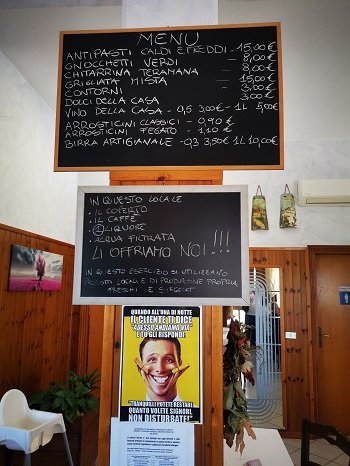 MENU
ANTIPASTI CALDI E FREDDI - 15,00€
GNOCCHETTI VERDI - 8,00€
CHITARRINA TERAMANA - 8,00€
GRIGLIATA MISTA - 15,00€
CONTORNI - 3,00€
DOLCI DELLA CASA 3,00€
VINO DELLA CASA - 0,5 3,00€ - 1L 5,00€
ARROSTICINI CLASSICI - 0,90€
ARROSTICINI FEGATO - 1,10€
BIRRA ARTIGIANALE - 0,3 3,50€ 1L 10,00€
IN QUESTO LOCALE
• IL COPERTO
• IL CAFFÈ
• 1 LIQUORE
• ACQUA FILTRATA
LI OFFRIAMO NOI!!!
IN QUESTO ESERCIZIO SI UTILIZZANO
PRODOTTI LOCALI E DI PRODUZIONE PROPRIA
FRESCHI E SURGELATI
QUANDO ALL'UNA DI NOTTE
IL CLIENTE TI DICE
"ADESSO ANDIAMO VIA"
E TU GLI RISPONDI
"TRANQUILLI POTETE RESTARE
QUANTO VOLETE SIGNORI,
NON DISTURBATE!"